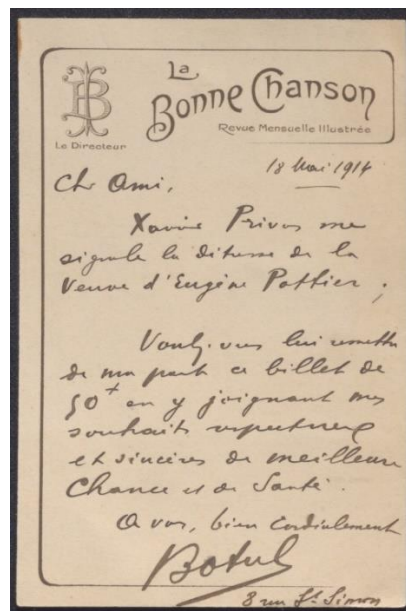 La
Bonne Chanson
Revue Mensuelle Illustrée
Le Directeur
18 Mai 1914
Ch Ami,
Xavier Privas me
signale la détresse de la
Veuve d'Eugène Pottier ;
Voulez-vous lui remettre
de ma part ce billet de
50 en y joignant mes
souhaits respectueux
et sincères de meilleure
Chance et de Santé.
A vous, bien Cordialement
Botrel
8 rue St Simon